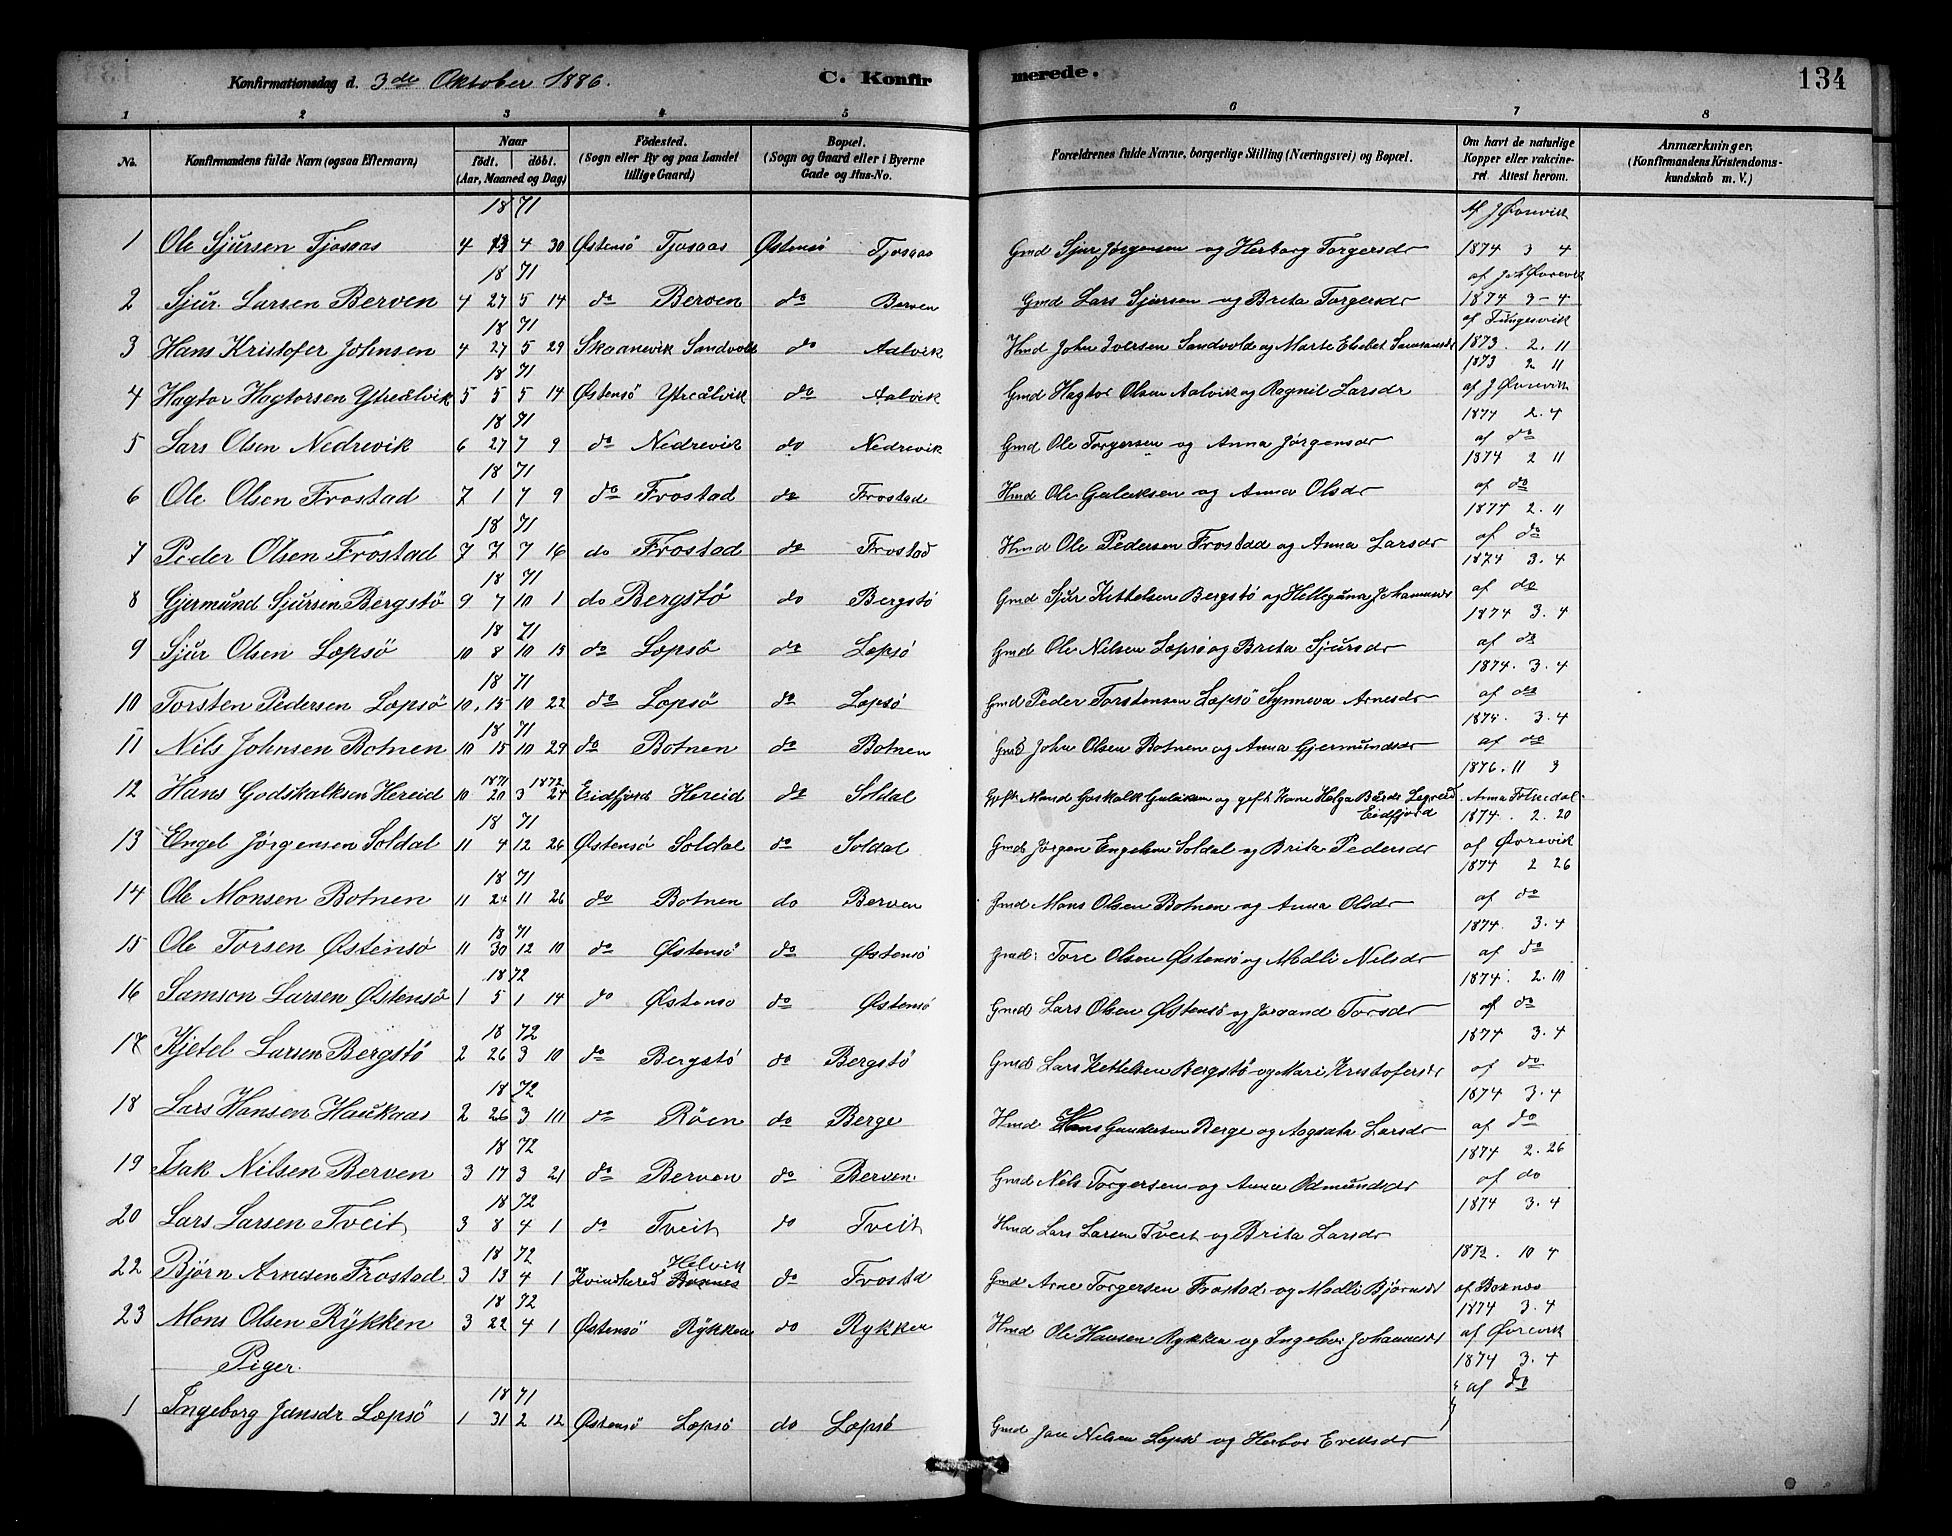 Konfirmationsdag d. 3de Oktober 1886. C. Konfir merede. 134
1 2 3 4 5 6 7 8
No. Konfirmandens fulde Navn (ogsaa Efternavn) Naar født. døbt. (Aar, Maaned og Dag) Fødested. (Sogn eller By og paa Landet tillige Gaard) Bopæl. (Sogn og Gaard eller i Byerne Gade og Hus-No. Forældrenes fulde Navne, borgerlige Stilling (Næringsvei) og Bopæl. Om havt de naturlige Kopper eller vakcineret. Attest herom. Anmærkninger. (Konfirmandens Kristendomskundskab m. V.)
18 71 Af J Øvrevik
1 Ole Sjursen Tjosaas 4 4 30 Østensö Tjosaas Østensö Tjosaas Gmd Sjur Jørgensen og Herborg Torgersdr 1874 3 4
18 71
2 Sjur Larsen Berven 4 27 5 14 do Berven do Berven Gmd Lars Sjursen og Brita Torgersdr 1874 3-4
18 71 af Tungesvik
3 Hans Kristofer Johnsen 4 27 5 29 Skaanevik Sandvold do Aalvik Hmd John Iversen Sandvold og Marte Elisbet Samsonsdr 1873. 2. 11
18 71 1873 2 11
4 Hagtor Hagtorsen Ytreålvik 5 5 5 14 Østensö Ytreålvik do Aalvik Gmd Hagtor Olsen Aalvik og Ragnil Larsdr af J Øvrevik
18 71 1874 2. 4
5 Lars Olsen Nedrevik 6 27 7 9 do Nedrevik do Nedrevik Gmd Ole Torgersen og Anna Jørgensdr af do
18 71 1874 2 11
6 Ole Olsen Frostad 7 1 7 9 do Frostad do Frostad Hmd Ole og Anna Olsdr af do
18 71 1874 2. 11
7 Peder Olsen Frostad 7 7 7 16 do Frostad do Frostad Hmd Ole Pedersen Frostad og Anna Larsdr af do
18 71 1874 3. 4
8 Gjermund Sjursen Bergstö 9 7 10 1 do Bergstö do Bergstö Gmd Sjur Kittelsen Bergstö og Helleguna Johannesdr af do
18 71 1874 3. 4
9 Sjur Olsen Læpsö 10 8 10 15 do Læpsö do Læpsö Gmd Ole Nilsen Læpsö og Brita Sjursdr af do
18 71 1874. 3. 4
10 Torsten Pedersen Læpsö 10. 15 10 22 do Læpsö do Læpsö Gmd Peder Torstensen Læpsö Synneva Arnesdr af do
18 71 1874. 3. 4
11 Nils Johnsen Botnen 10 15 10 29 do Botnen do Botnen Gmd John Olsen Botnen og Anna Gjermundsdr af do
1871 1872 1876. 11 3
12 Hans Godskalksen Hereid 10 20 3 24 Eidfjord Hereid do Soldal Gift Mand Goskalk og gift Kone Helga Legreid Eidfjord Anna Folkedal
18 71 1874. 2. 20
13 Engel Jørgensen Soldal 11 4 12 26 Østensö Soldal do Soldal Gmd Jørgen Engelsen Soldal og Brita Pedersdr af Øvrevik
18 71 1874 2 26
14 Ole Monsen Botnen 11 24 11 26 do Botnen do Berven Gmd Mons Olsen Botnen og Anna Olsdr af do
18 71 1874. 3. 4
15 Ole Torsen Østensö 11 30 12 10 do Østensö do Østensö Gmd Tore Olsen Østensö og Madli Nilsdr af do
18 72 1874. 2. 10
16 Samson Larsen Østensö 1 5 1 14 do Østensö do Østensö Gmd Lars Olsen Østensö og Jorand Torsdr af do
18 72 1874 3. 4
17 Kjetel Larsen Bergstö 2 26 3 10 do Bergstö do Bergstö Gmd Lars Kettelsen Bergstö og Mari Kristofersdr af do
18 72 1874 3. 4
18 Lars Hansen Haukaas 2 26 3 10 do Röen do Berge Hmd Hans Gundersen Berge og Aagaata Larsdr af do
18 72 1874 2. 26
19 Isak Nilsen Berven 3 17 3 21 do Berven do Berven Gmd Nels Torgersen og Anna Odmundsdr af do
18 72 1874 3. 4
20 Lars Larsen Tveit 3 8 4 1 do Tveit do Tveit Hmd Lars Larsen Tveit og Brita Larsdr
18 72 Helvik 1872. 10 4
22 Bjørn Arnesen Frostad 3 13 4 1 Kvindhered do Frosta Gmd Arne Torgersen Frostad og Madli Bjørnsdr af
18 72 1874 3. 4
23 Mons Olsen Rykken 3 22 4 1 Østensö Rykken do Rykken Hmd Ole Hansen Rykken og Ingebor Johannesdr af Øvrevik
Piger. 1874 3. 4
18 71 af do
1 Ingeborg Jansdr Læpsö 1 31 2 12 Østensö Læpsö do Læpsö Gmd Jan Nilsen Læpsö og Herbor Eriksdr